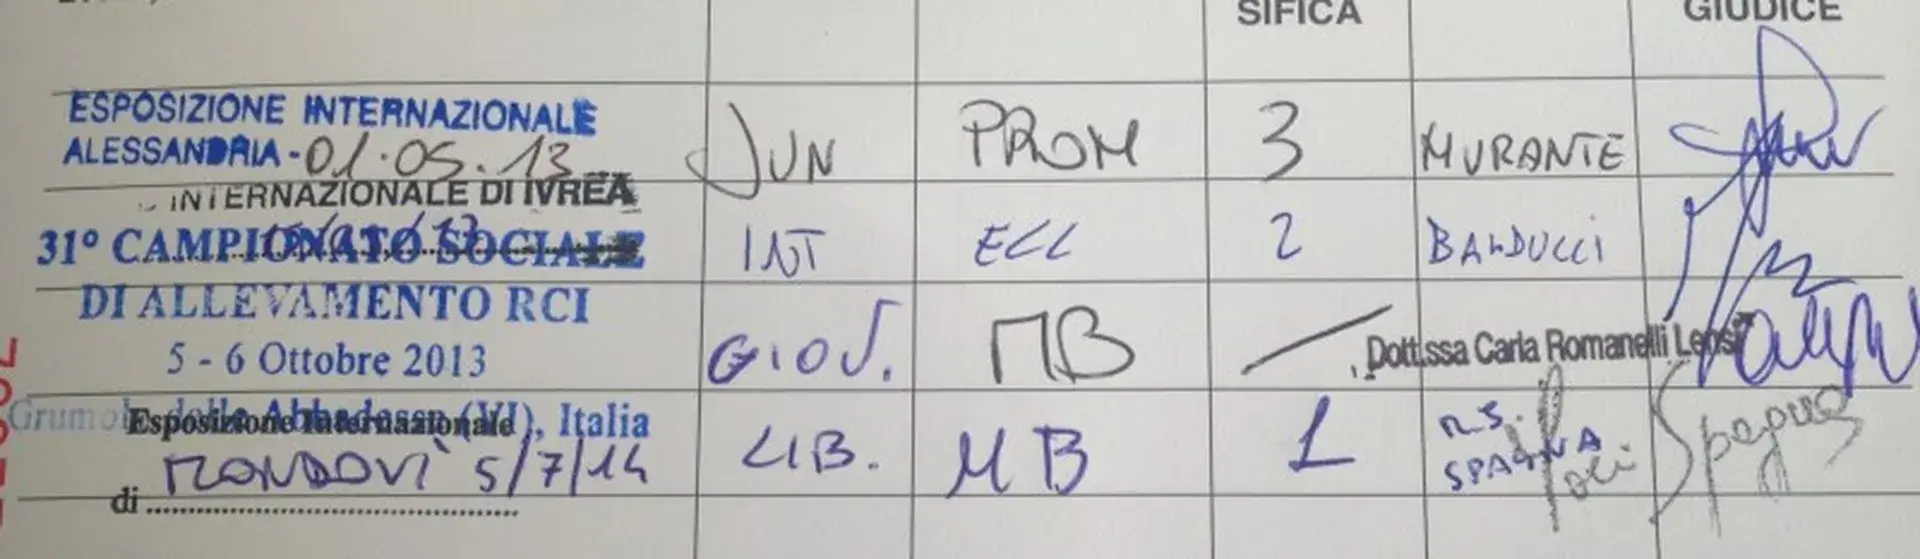 SIFICA GIUDICE
ESPOSIZIONE INTERNAZIONALE
ALESSANDRIA - 01.05.13 JUN PROM 3 MURANTE
INTERNAZIONALE DI IVREA
31° CAMPIONATO SOCIALE INT ECC 2 BALDUCCI
DI ALLEVAMENTO RCI
5 - 6 Ottobre 2013 GIOV. MB Dott.ssa Carla Romanelli Lensi
Grumolo delle Abbadesse (VI), Italia
Esposizione Internazionale
MONDOVI' 5/7/14 LIB. MB 1 R.S. SPAGNA Spagna
di